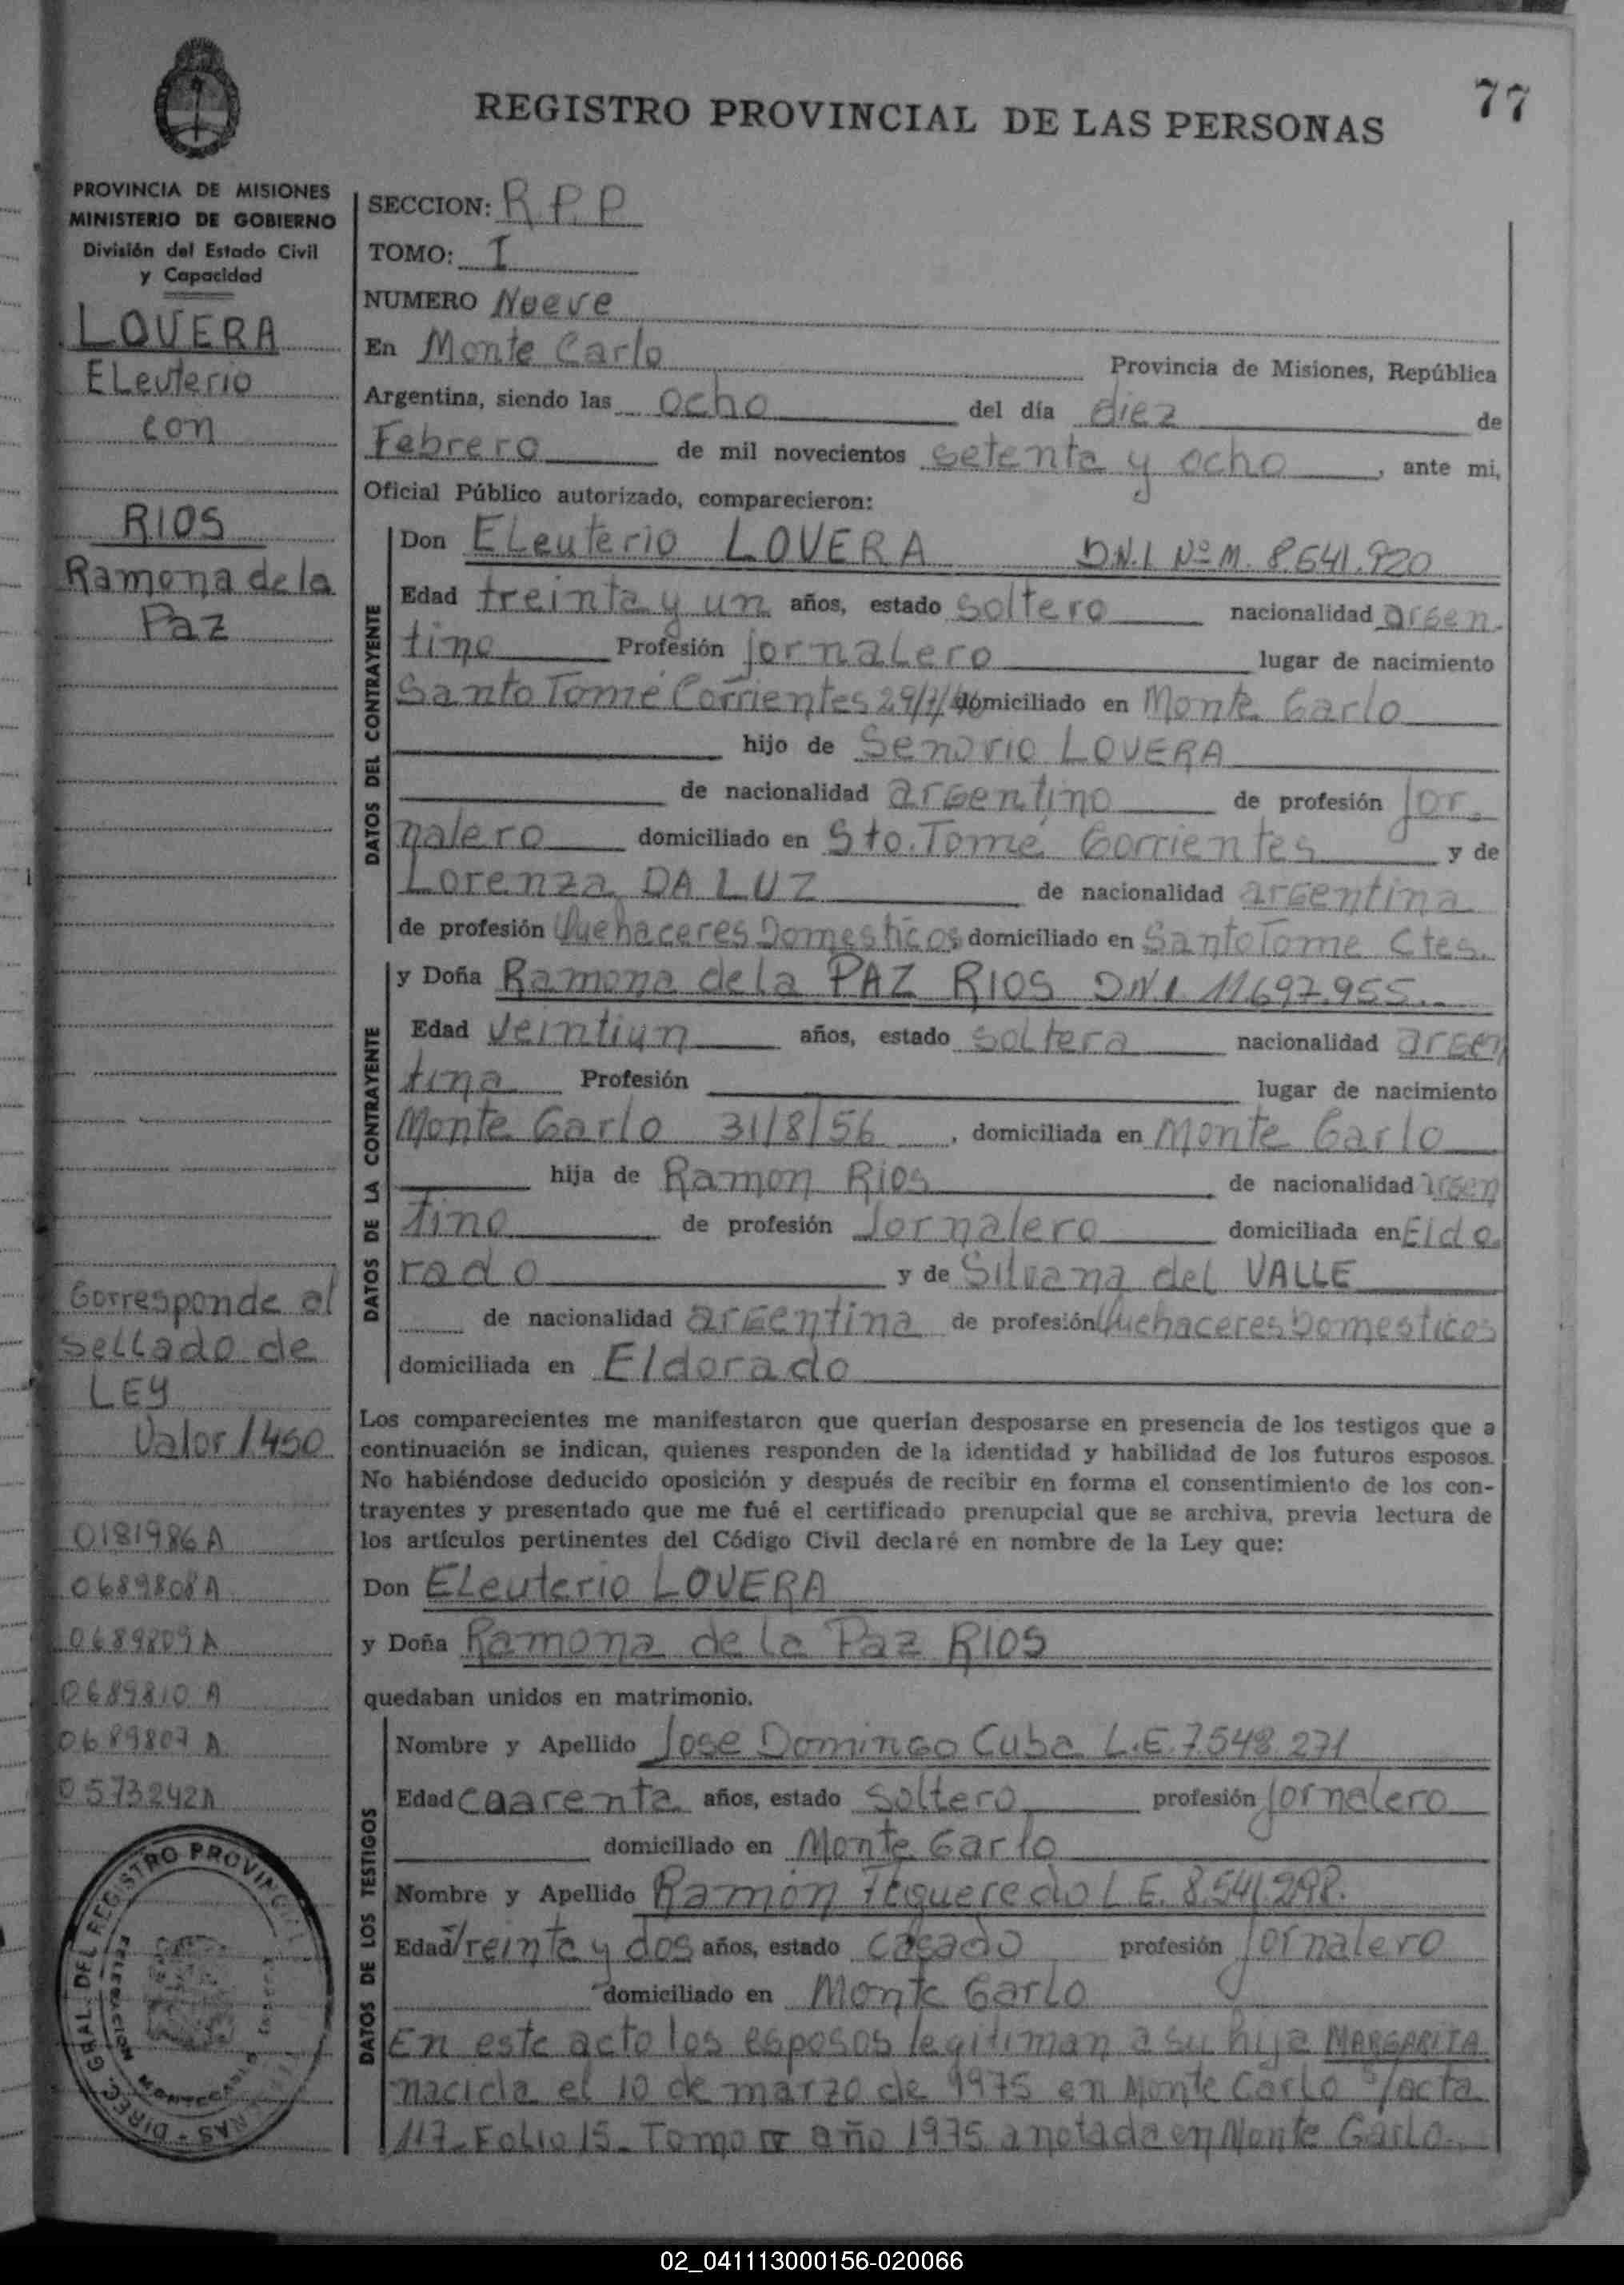 77
REGISTRO PROVINCIAL DE LAS PERSONAS
PROVINCIA DE MISIONES
MINISTERIO DE GOBIERNO
División del Estado Civil
y Capacidad
LOVERA
ELeuterio
con
RIOS
Ramona de la
Paz
Corresponde al
seLLado de
LEY
Valor 1450
0181986 A
0689808 A
0689809 A
0689810 A
0689807 A
0573242 A
SECCION: R.P.P
TOMO: I
NUMERO Nueve
En Monte Carlo Provincia de Misiones, República
Argentina, siendo las ocho del día diez de
Febrero de mil novecientos setenta y ocho, ante mi,
Oficial Público autorizado, comparecieron:
DATOS DEL CONTRAYENTE
Don ELeuterio LOVERA D.N.I Nº M. 8.541.920
Edad treinta y un años, estado soltero nacionalidad argen
tino Profesión jornaLero lugar de nacimiento
Santo Tomé Corrientes 29/7/46 domiciliado en Monte Carlo
hijo de Senorio LOVERA
de nacionalidad argentino de profesión jor
nalero domiciliado en Sto. Tomé Corrientes y de
Lorenza DA LUZ de nacionalidad argentina
de profesión Quehaceres Domesticos domiciliado en Santo Tome Ctes.
DATOS DE LA CONTRAYENTE
y Doña Ramona de la PAZ RIOS DNI 11.697.955.
Edad veintiun años, estado soltera nacionalidad argen
tina Profesión lugar de nacimiento
Monte Carlo 31/8/56, domiciliada en Monte Carlo
hija de Ramon Rios de nacionalidad argen
tino de profesión Jornalero domiciliada en Eldo
rado y de Silvana del VALLE
de nacionalidad argentina de profesión Quehaceres Domesticos
domiciliada en Eldorado
Los comparecientes me manifestaron que querían desposarse en presencia de los testigos que a
continuación se indican, quienes responden de la identidad y habilidad de los futuros esposos.
No habiéndose deducido oposición y después de recibir en forma el consentimiento de los con-
trayentes y presentado que me fué el certificado prenupcial que se archiva, previa lectura de
los artículos pertinentes del Código Civil declaré en nombre de la Ley que:
Don ELeuterio LOVERA
y Doña Ramona de la Paz RIOS
quedaban unidos en matrimonio.
DATOS DE LOS TESTIGOS
Nombre y Apellido Jose Domingo Cuba L.E. 7.548.271
Edad cuarenta años, estado soltero profesión jornalero
domiciliado en Monte Carlo
Nombre y Apellido Ramón Fegueredo L.E. 8.541.298.
Edad treinta y dos años, estado casado profesión jornalero
domiciliado en Monte CarLo
En este acto los esposos legitiman a su hija MARGARITA
nacida el 10 de marzo de 1975 en Monte Carlo s/acta
117-Folio 15-Tomo IV año 1975 anotada en Monte Carlo
DIREC. GRAL. DEL REGISTRO PROVINCIAL
02_041113000156-020066